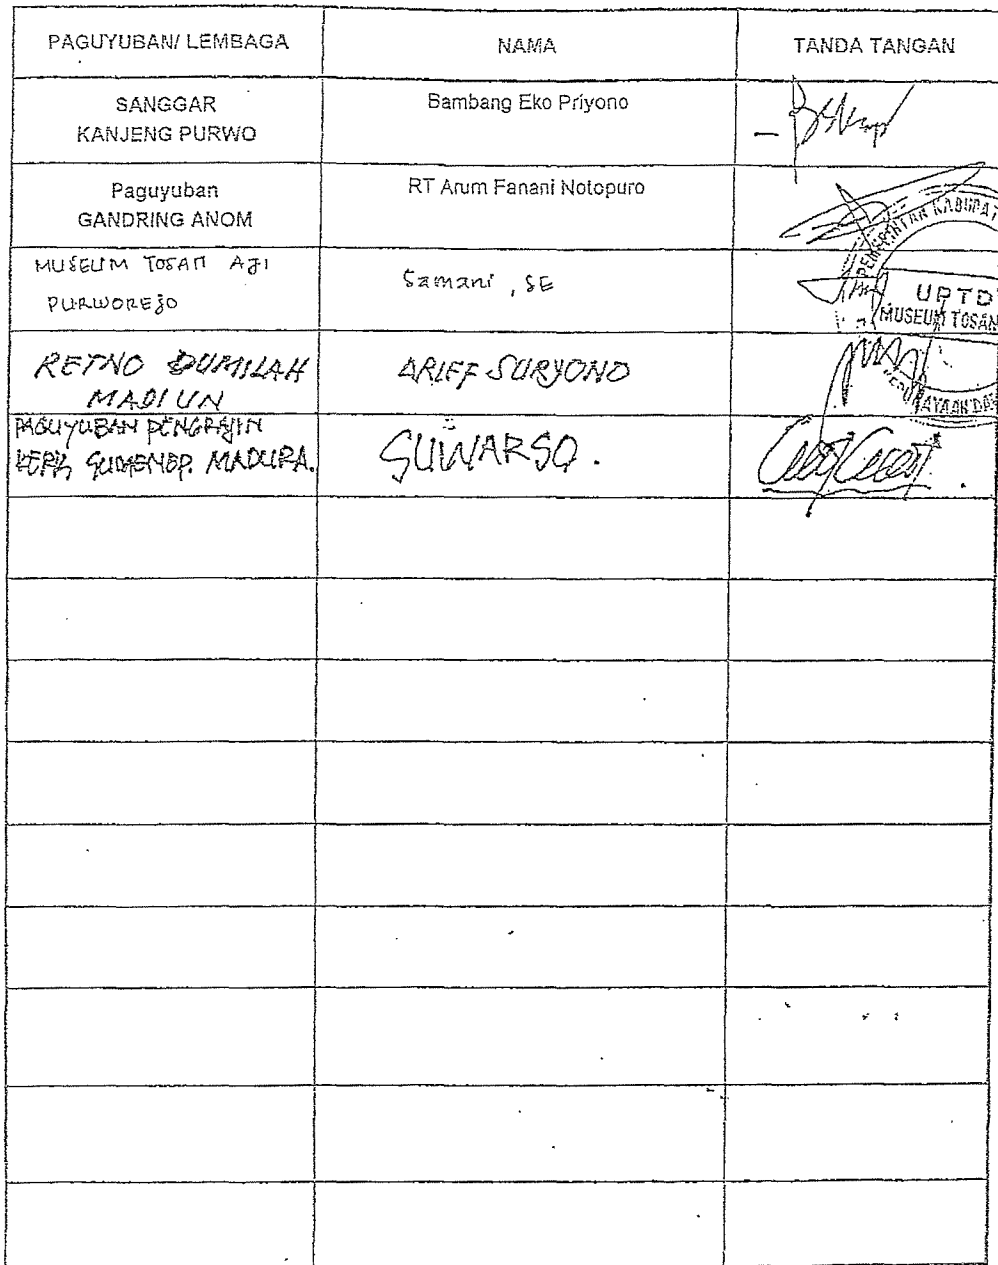 PAGUYUBAN/ LEMBAGA
NAMA
TANDA TANGAN
SANGGAR
KANJENG PURWO
Bambang Eko Priyono
Paguyuban
GANDRING ANOM
RT Arum Fanani Notopuro
MUSEUM TOSAN AJI
PURWOREJO
Samani, SE
UPTD
MUSEUM TOSAN
RETNO DUMILAH
MADIUN
ARIEF SURYONO
PAGUYUBAN PENGRAJIN
SUMENEP. MADURA.
SUWARSO.